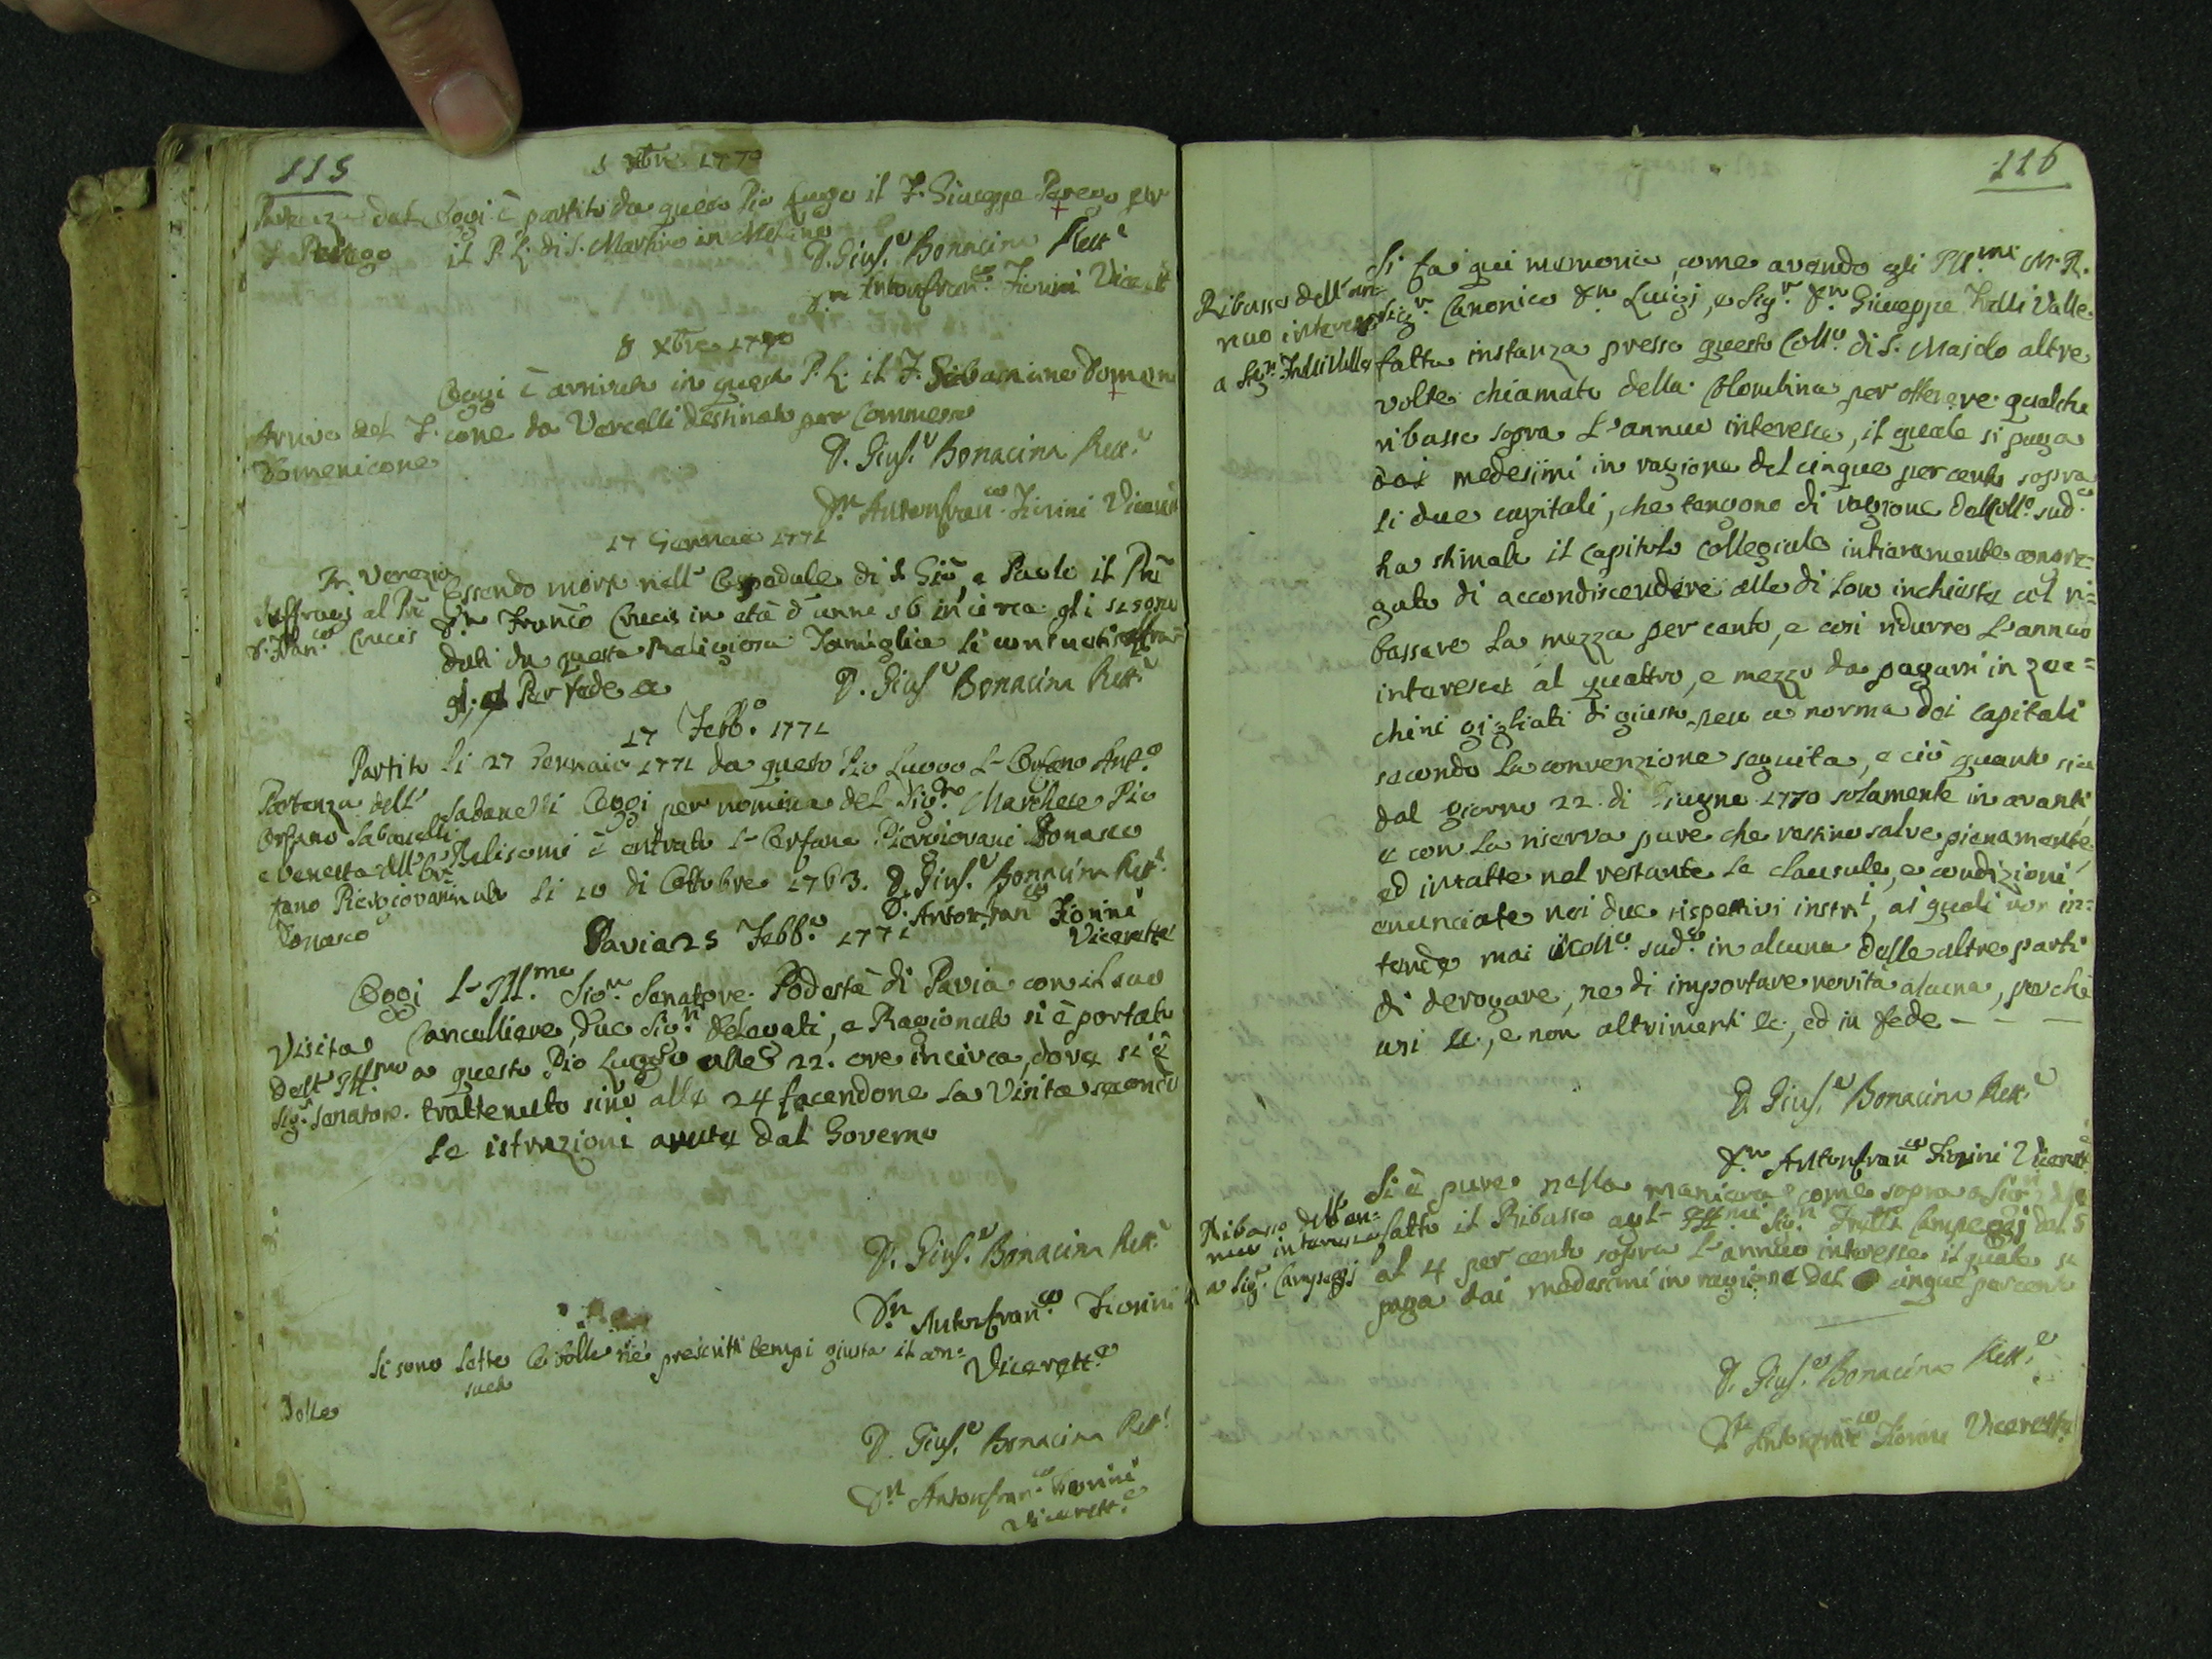 115
1 Xbre 1770
Partenza del Oggi è partito da questo Pio Luogo il F. Giuseppe Perego per
F. Perego il P. L. di S. Martino in Milano
D. Gius.e Bonacina Rett.e
D.n Antonfran.co Fiorini Vicerett
8 Xbre 1770
Oggi è arrivato in questo P. L. il F. Domeni
Arrivo del F. cone da Vercelli destinato per Commesso
Domenicone
D. Gius.e Bonacina Rett.e
D.n Antonfran.co Fiorini Vicerett
17 Gennaio 1771
In Venezia Essendo morto nell' Ospedale di S. Gio e Paolo il Prē
Suffragj al Prē D.n Franco Crucis in età d'anni 56 incirca gli si sono
D. Fran.co Crucis dati da questa Religiosa Famiglia li consueti suffra=
gj. Per fede
D. Gius.e Bonacina Rett.e
17 Febb.o 1771
Partito li 27 Gennaio 1771 da questo Pio Luogo L'Orfano Ant.o
Partenza dell' Sabanelli Oggi per nomina del Sig.re Marchese Pio
Orfano Sabanelli Belisomi è entrato L'Orfano Piergiovani Bonasco
e venuta dell' Or
fano Piergiovani nato li 10 di Ottobre 1763. D. Gius.e Bonacina Rett.e
Bonasco D. Antonfran.co Fiorini
Vicerette
Pavia 25 Febb.o 1771
Oggi L'Ill.mo Sig.r Senatore Podestà di Pavia con il suo
Visita Cancelliere, due Sig.ri Delegati, e Ragionato si è portato
Dell' Ill.mo a questo Pio Luogo alle 22. ore incirca, dove si è
Sig.r Senatore. trattenuto sino alle 24 facendone la Visita secondo
le istruzioni avute dal Governo
D. Gius.e Bonacina Rett.e
D.n Antonfran.co Fiorini
Vicerett.e
Si sono lette le bolle ne' prescritti tempi giusta il con=
sueto
Bolle
D. Gius.e Bonacina Rett.e
D.n Antonfran.co Fiorini
Vicerett.e
116
Si fa qui memoria, come avendo gli Ill.mi M. R.
Ribasso dell' an= Sig.r Canonico D.n Luigi, e Sig.r D.n Giuseppe Frelli Valle
nuo interesse fatta instanza presso questo Coll.o di S. Majolo altre
a Sig.ri Frelli Valle volte chiamato della Colombina per ottenere qualche
ribasso sopra L'annuo interesse, il quale si paga
dai medesimi in ragione del cinque per cento sopra
li due capitali, che tengono di ragione del Coll.o sud.o
ha stimato il Capitolo Collegiale intieramente congre=
gato di accondiscendere alla di loro inchiesta col ri=
bassare la mezza per cento, e così ridurre L'annuo
interesse al quattro, e mezzo da pagarsi in zec=
chini gigliati di giusto peso a norma dei capitali
secondo la convenzione seguita, e ciò quanto sia
dal giorno 22. di Giugno 1770 solamente in avanti,
e con la riserva pure che restino salve pienamente,
ed intatte nel restante le clausule, e condizioni
enunciate nei due rispettivi instri, ai quali non in=
tende mai il Coll.o sud.o in alcuna delle altre parti
di derogare, ne di importare novità alcuna, perchè
così &c., e non altrimenti &c., ed in fede - - -
D. Gius.e Bonacina Rett.e
D.n Antonfran.co Fiorini Vicerett
Si è pure nella maniera come sopra
Ribasso dell' an= fatto il Ribasso agl' Ill.mi Sig.ri Frelli Campeggi dal 5
nuo interesse al 4 per cento sopra L'annuo interesse il quale si
a Sig.ri Campeggi paga dai medesimi in ragione del cinque per cento
D. Gius.e Bonacina Rett.e
D.n Antonfran.co Fiorini Vicerett.e